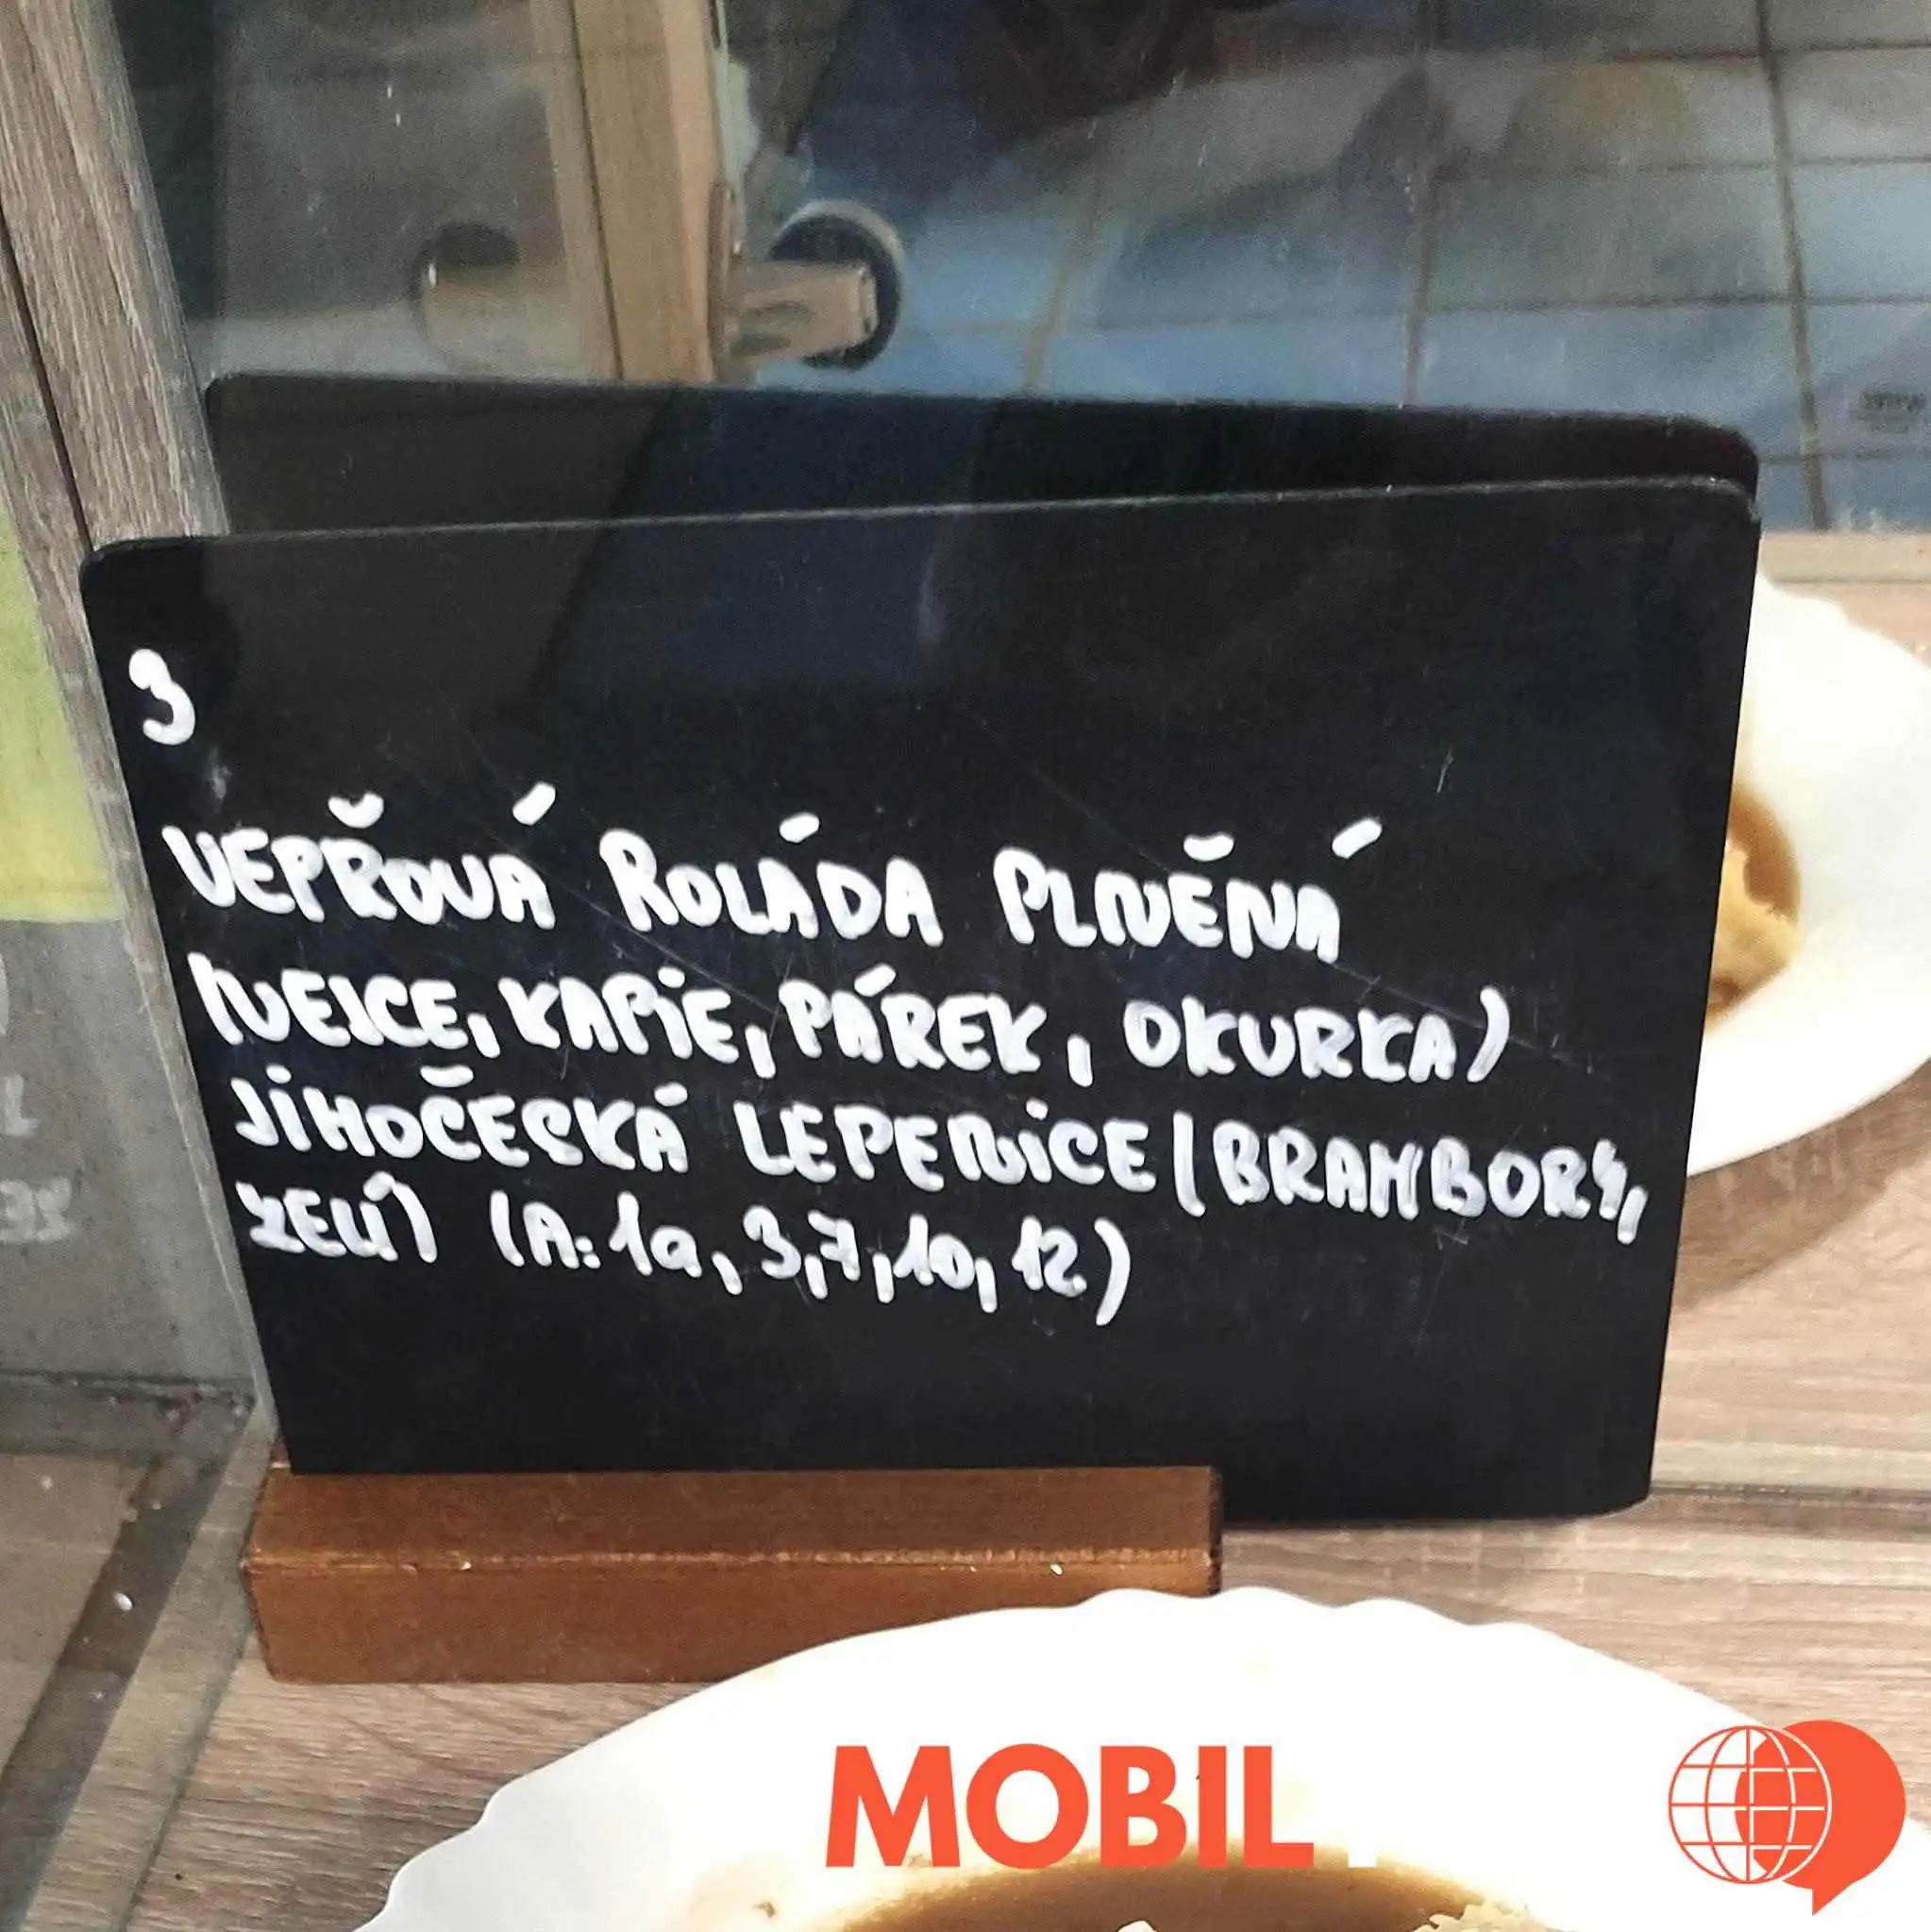 3
VEPŘOVÁ ROLÁDA PLNĚNÁ
(VEJCE, KAPIE, PÁREK, OKURKA)
JIHOČESKÁ LEPENICE (BRAMBORY,
ZELÍ) (A: 1a, 3,7,10, 12)
MOBIL